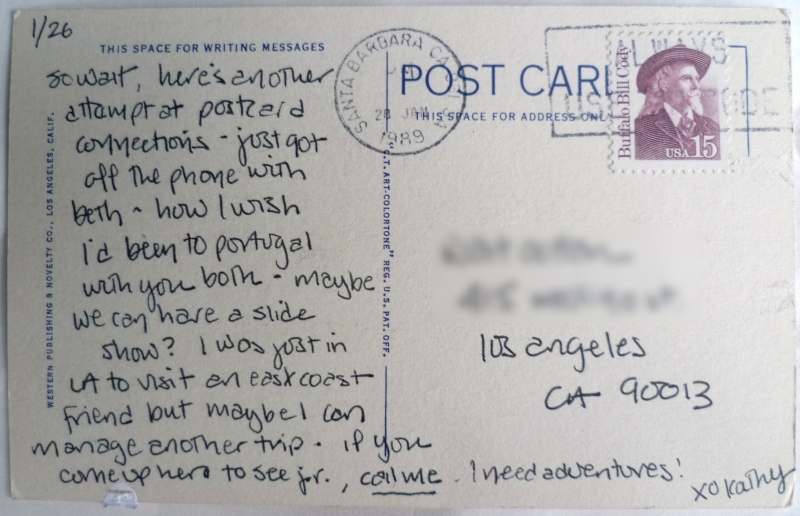 1/26
THIS SPACE FOR WRITING MESSAGES
so wait, here's another
attempt at postcard
connections - just got
off the phone with
beth - how I wish
I'd been to portugal
with you both - maybe
we can have a slide
show? I was just in
LA to visit an east coast
friend but maybe I can
manage another trip. if you
come up here to see jr., call me. I need adventures!
xo kathy
WESTERN PUBLISHING & NOVELTY CO., LOS ANGELES, CALIF.
"C.T. ART-COLORTONE" REG. U.S. PAT. OFF.
SANTA BARBARA CA
28 JAN
1989
POST CARD
THIS SPACE FOR ADDRESS ONLY
ALWAYS
USE CODE
Buffalo Bill Cody
USA 15
los angeles
CA 90013